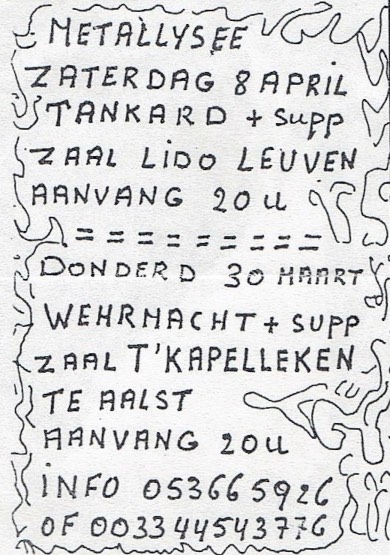 METALLYSEE
ZATERDAG 8 APRIL
TANKARD + SUPP
ZAAL LIDO LEUVEN
AANVANG 20 U
= = = = = = = = =
DONDERD 30 MAART
WEHRMACHT + SUPP
ZAAL T'KAPELLEKEN
TE AALST
AANVANG 20U
INFO 053665926
OF 003344543776